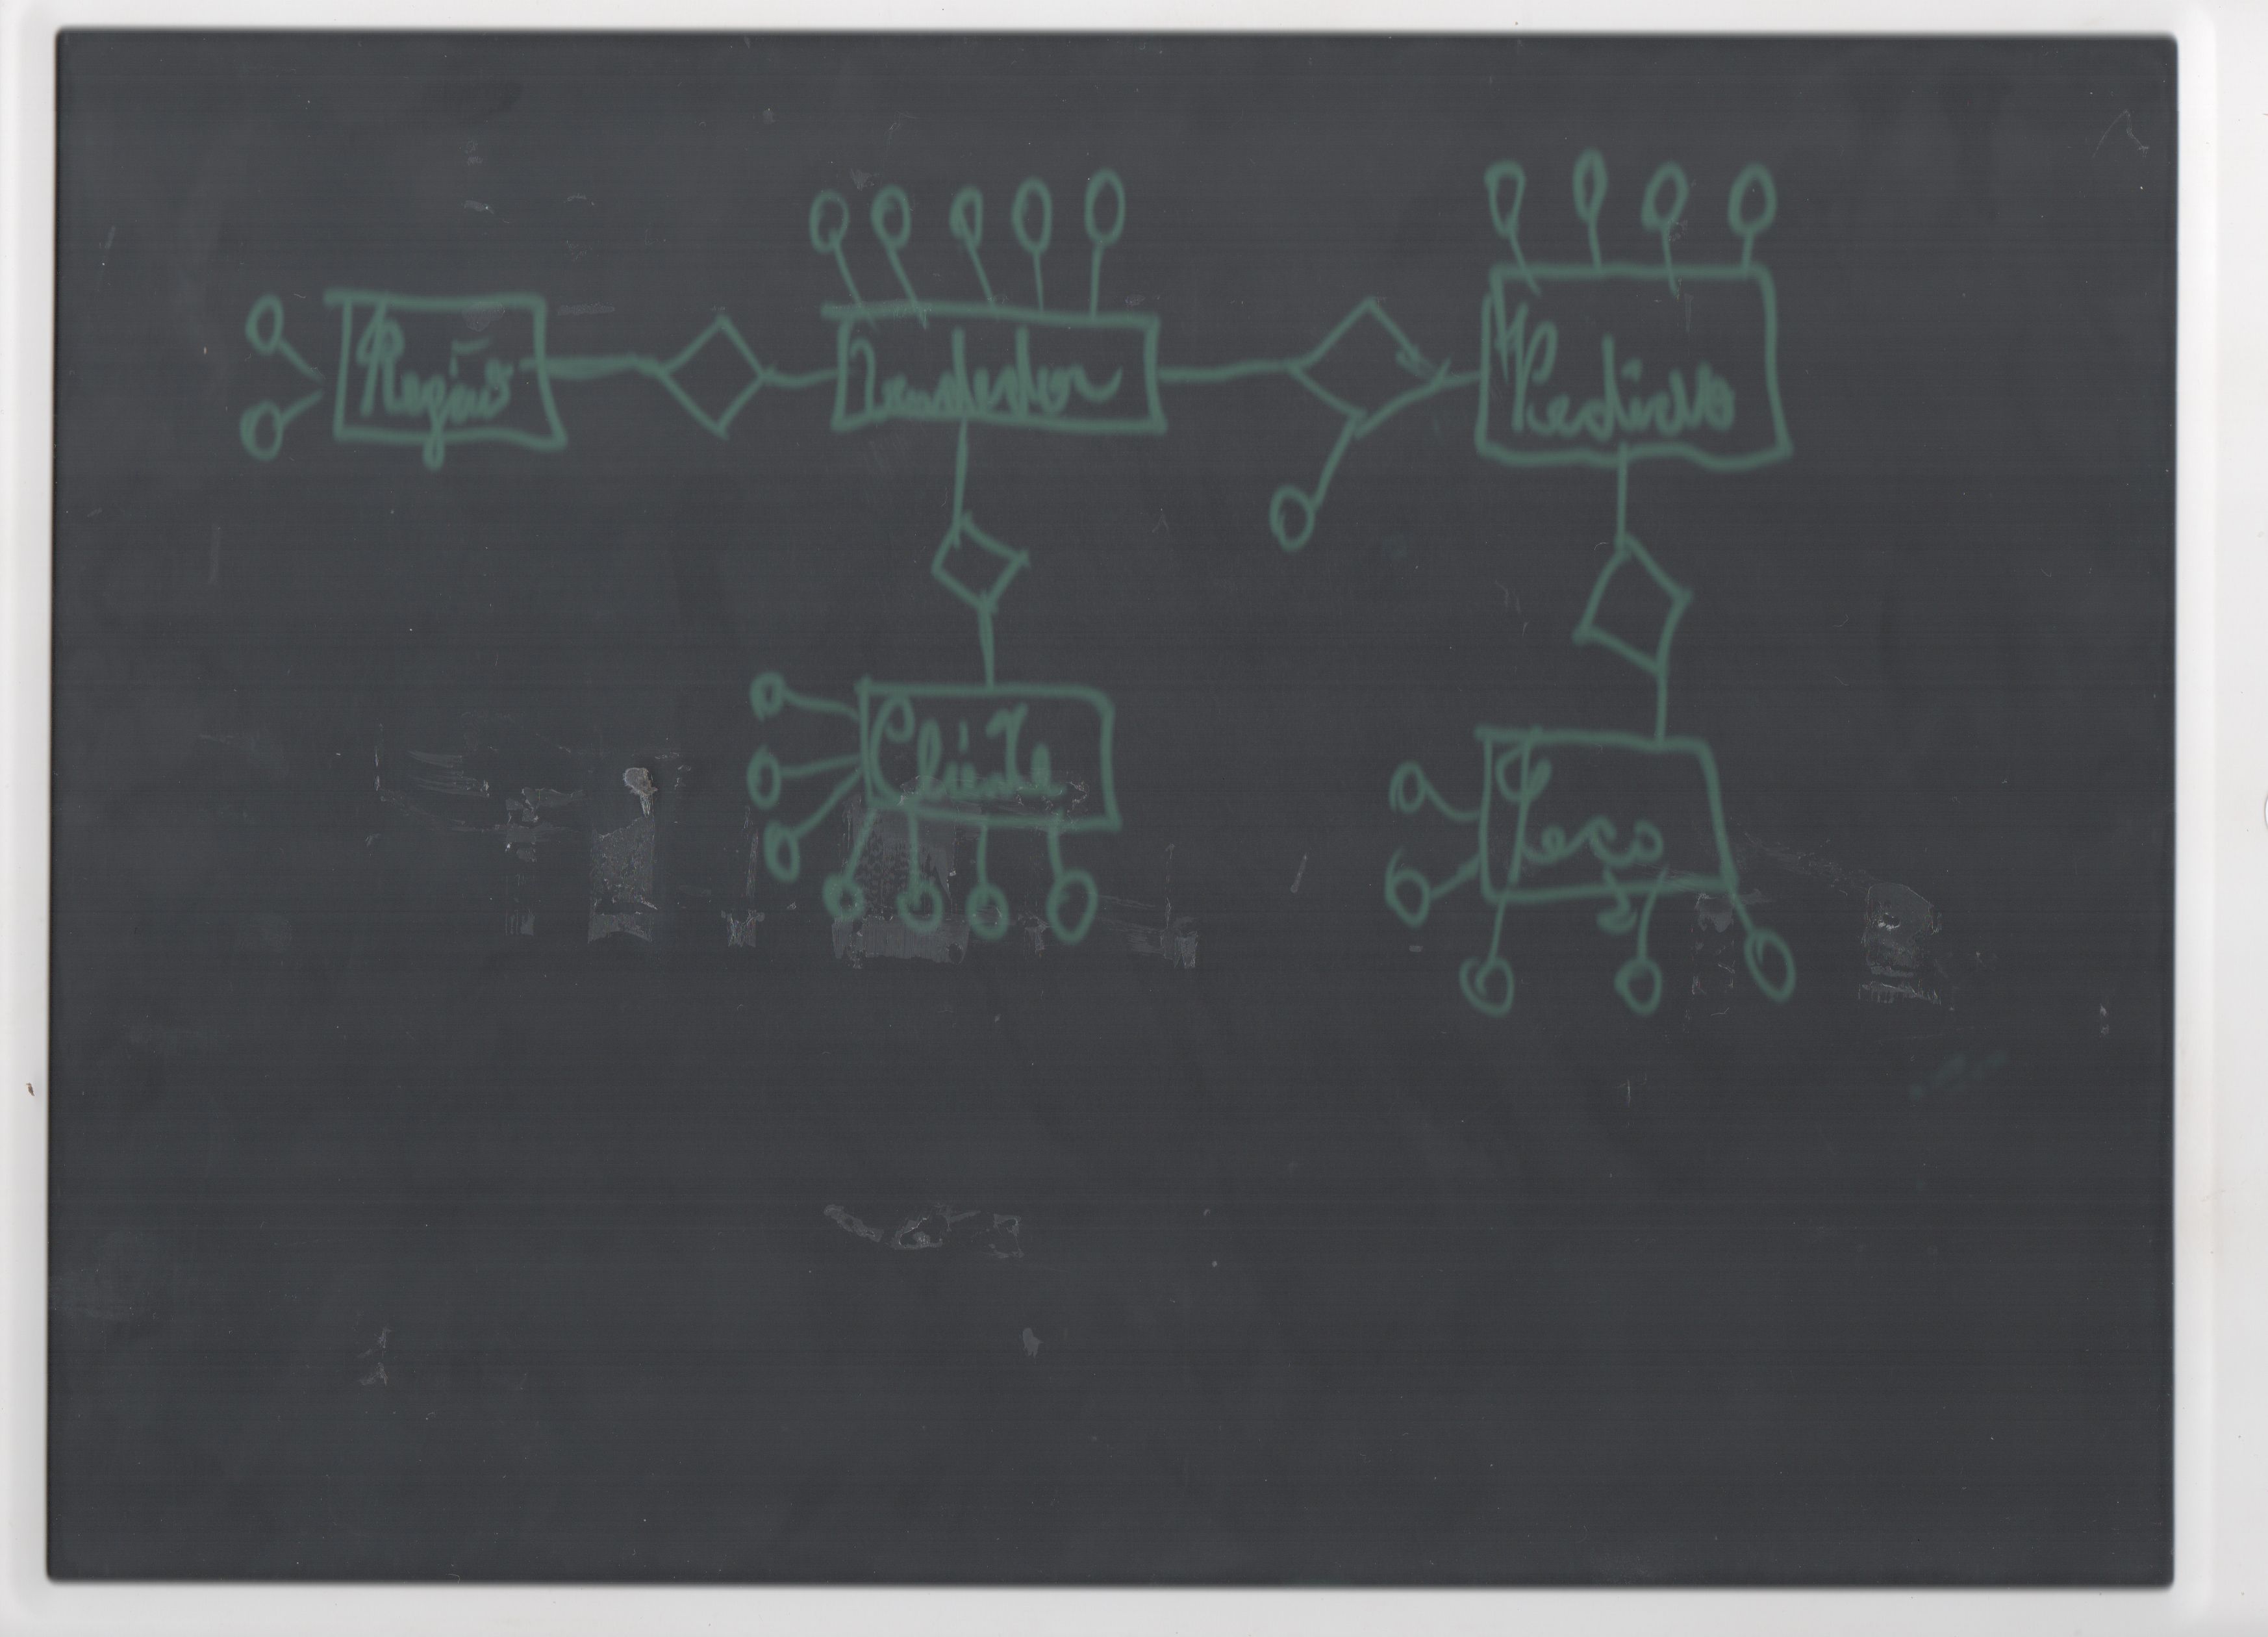 Região
Vendedor
Pedido
Cliente
Peço